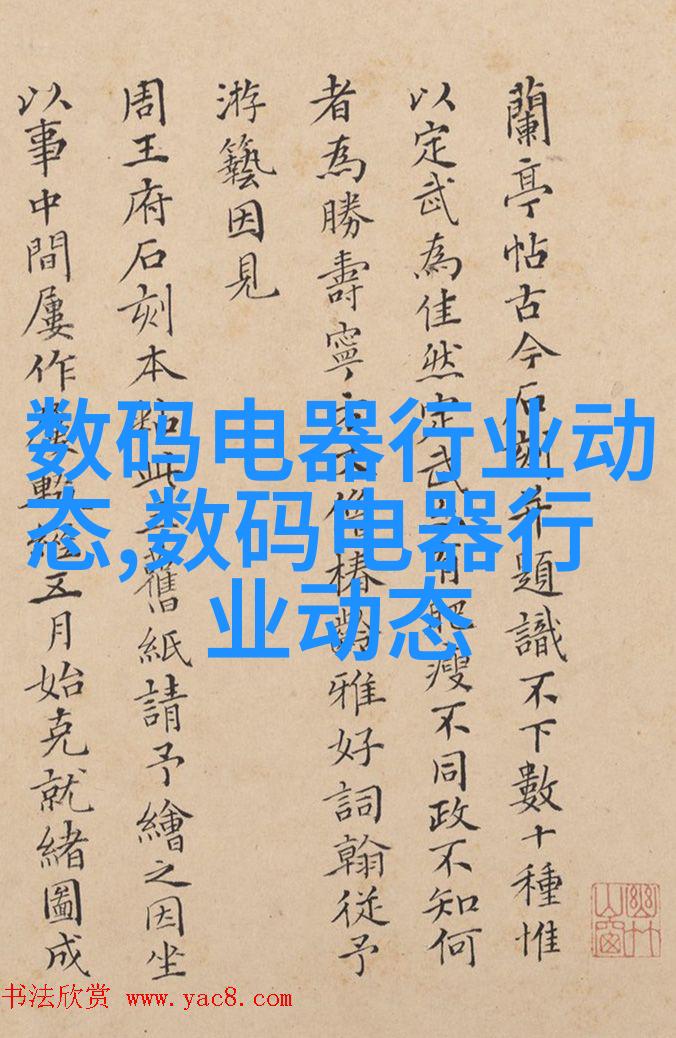 蘭亭帖古今石刻并題識不下數十種惟
以定武為佳然定武有肥瘦不同政不知何
者為勝壽寧椿齡雅好詞翰従予
游藝因見
周王府石刻本粘此舊紙請予繪之因坐
以事中間屢作五月始克就緒圖成
数码电器行业动
态,数码电器行
业动态
书法欣赏 www.yac8.com